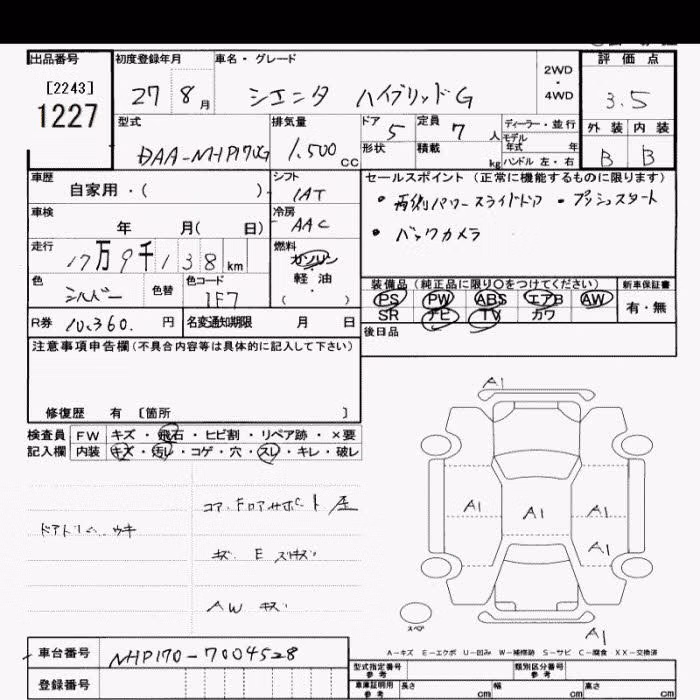 出品番号 初度登録年月 車名・グレード 2WD ・ 4WD 評価点
[2243]
1227 27 8月 シエンタ ハイブリッドG 3.5
型式 排気量 ドア 定員 ディーラー・並行 外装 内装
DAA-NHP170G 1.500cc 5 7人 モデル年式 年 B B
形状 積載 kg ハンドル 左・右
車歴 シフト セールスポイント (正常に機能するものに限ります)
自家用・( ) IAT ・両側パワースライドドア ・プッシュスタート
車検 冷房 ・バックカメラ
年 月( 日) AAC
走行 燃料
17万9千138km ガソリン
色 色替 色コード 軽油 装備品 (純正品に限り○をつけてください) 新車保証書
シルバー 1F7 ・( ) PS PW ABS エアB AW 有・無
SR ナビ TV カワ
R券 10,360.円 名変通知期限 月 日 後日品
注意事項申告欄(不具合内容等は具体的に記入して下さい)
修復歴 有 [箇所 ]
検査員 FW キズ・飛石・ヒビ割・リペア跡・×要
記入欄 内装 キズ・汚レ・コゲ・穴・スレ・キレ・破レ
コアサポート
ウキ
キズ E
AW キズ
A1
A1 A1 A1
A1
スペア
A1
A-キズ E-エクボ U-凹み W-補修跡 S-サビ C-腐食 XX-交換済
車台番号 NHP170-7004528
型式指定番号 参考 類別区分番号 参考
登録番号 車庫証明用 参考 長さ cm 幅 cm 高さ cm